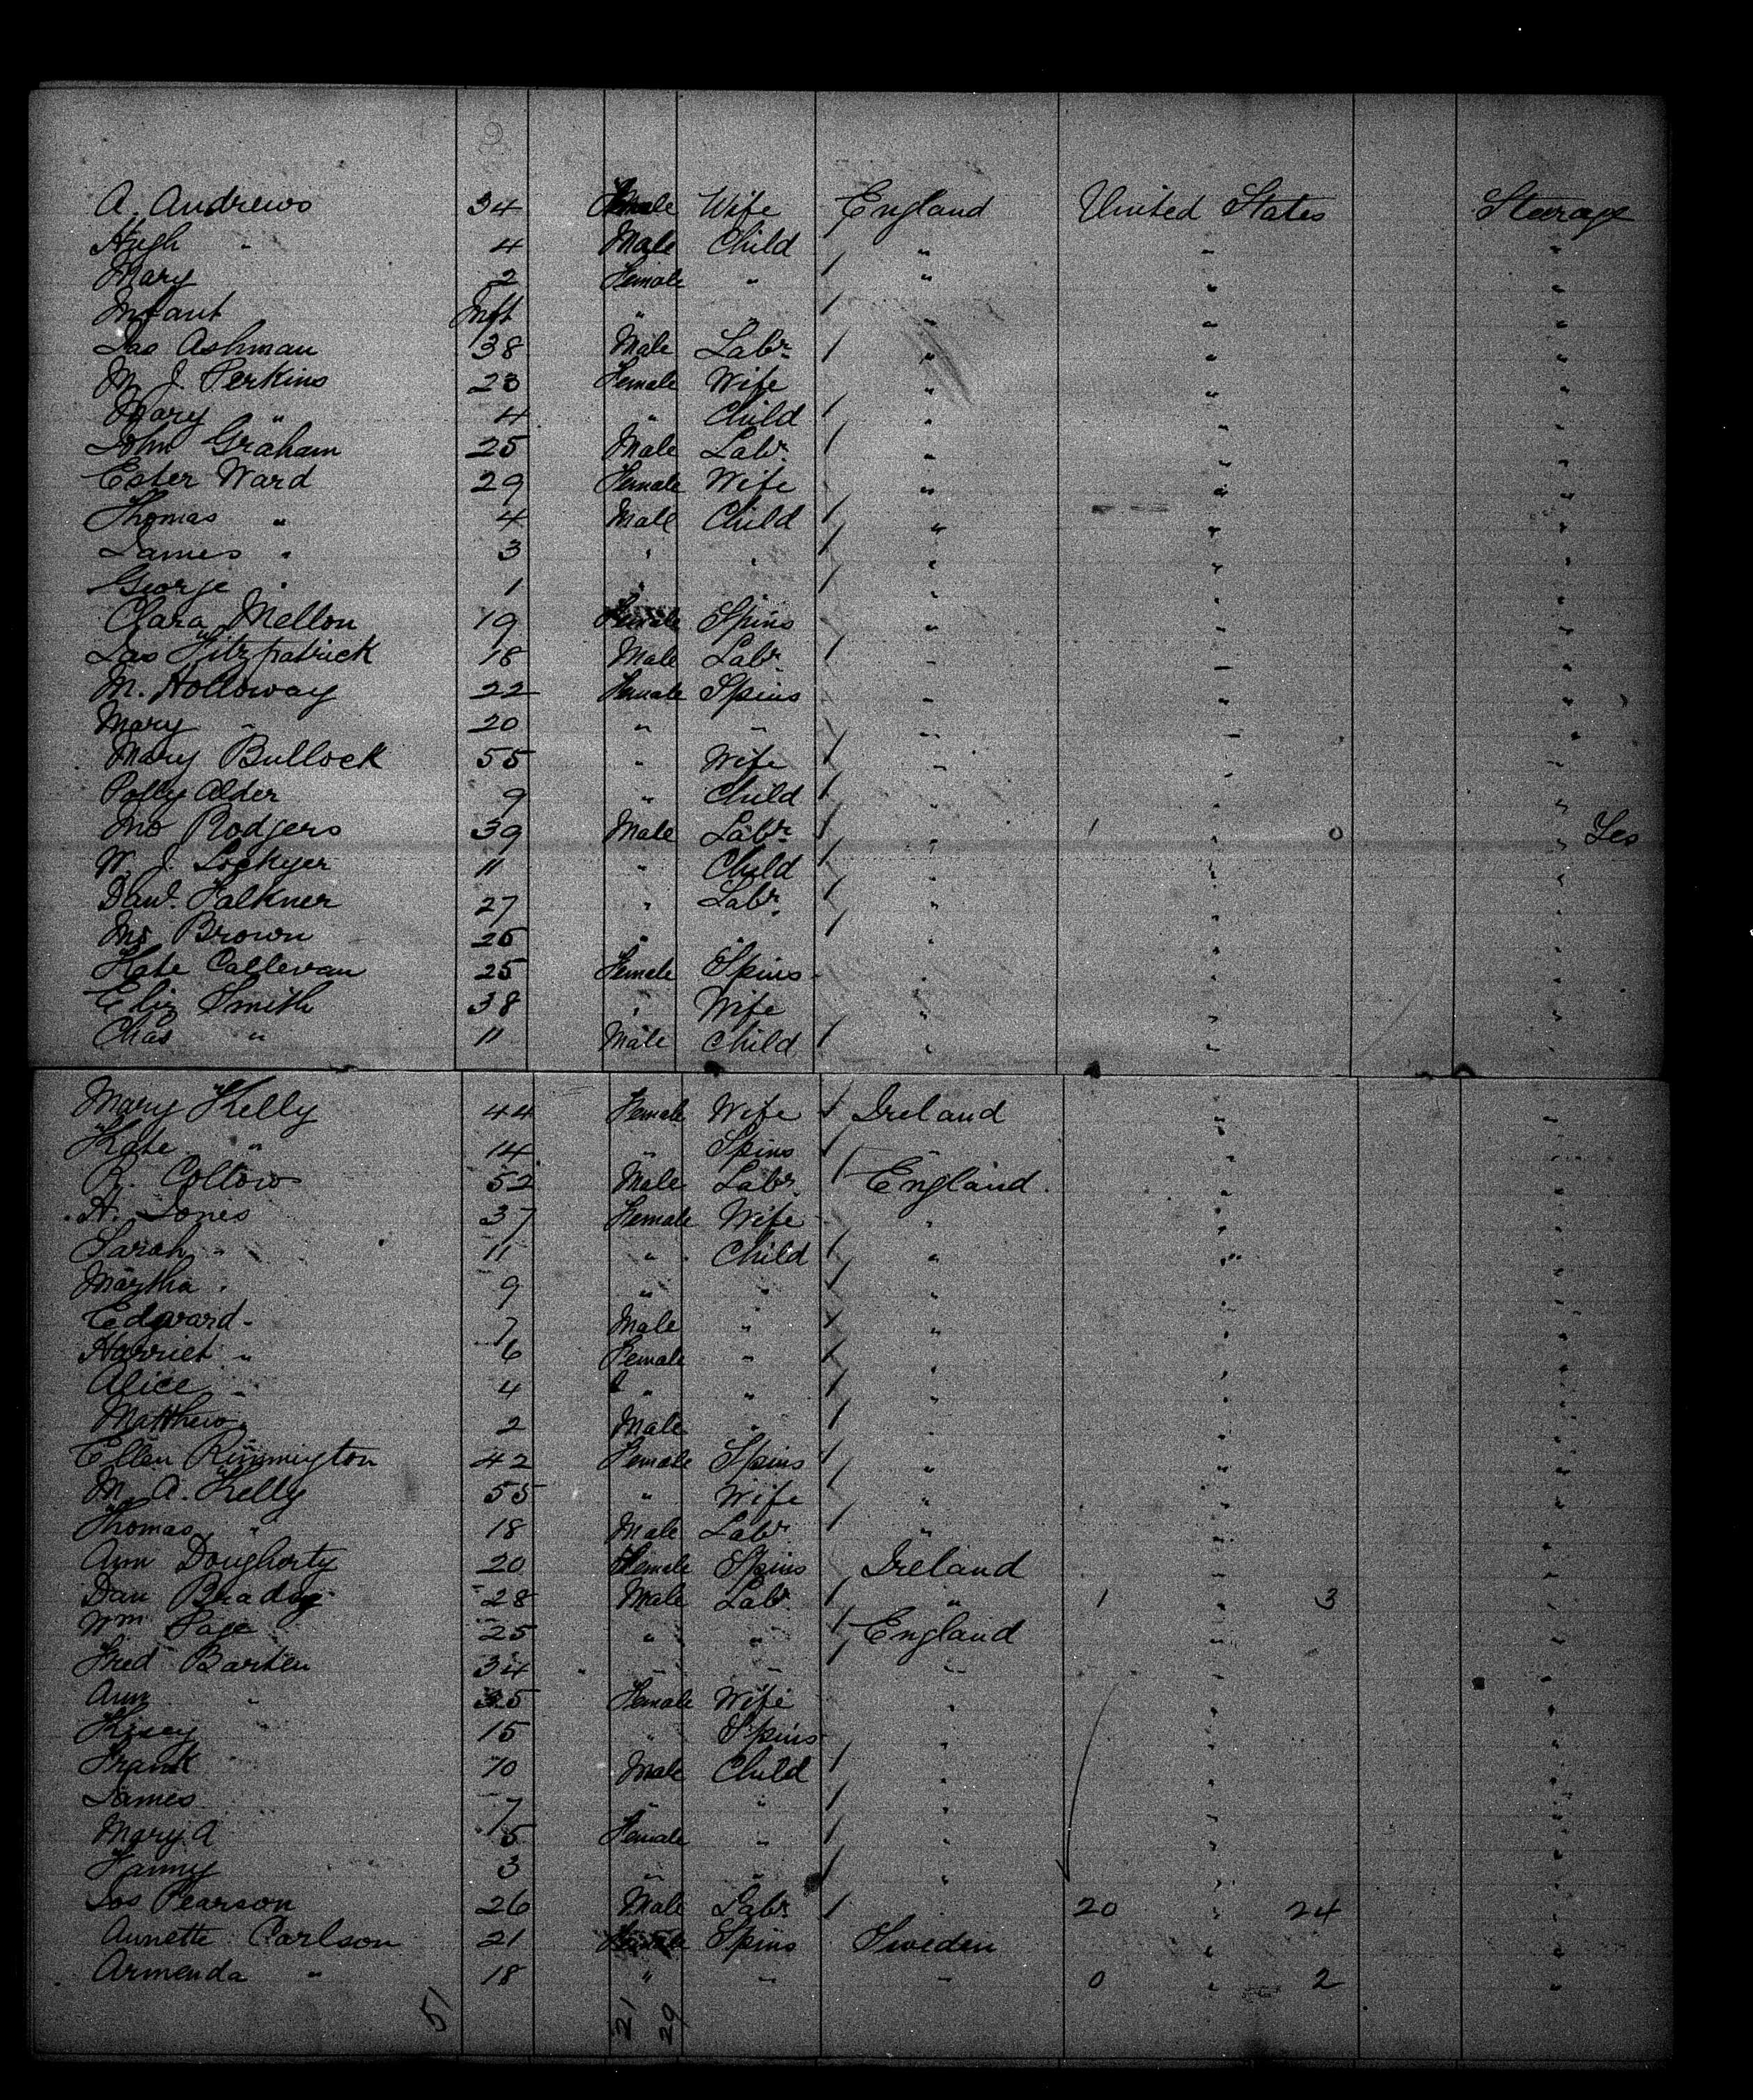 A. Andrews 34 Female Wife England United States Steerage
Hugh " 4 Male Child " " "
Mary 2 Female " " " "
Infant Inft " " " " "
Jas Ashman 38 Male Labr " " "
M. J. Perkins 23 Female Wife " " "
Mary " 4 " Child " " "
John Graham 25 Male Labr " " "
Ester Ward 29 Female Wife " " "
Thomas " 4 Male Child " " "
James " 3 " " " " "
George " 1 " " " "
Clara Mellon 19 Female Spins " " "
Jas Fitzpatrick 18 Male Labr " " "
M. Holloway 22 Female Spins " " "
Mary " 20 " " " " "
Mary Bullock 55 " Wife " " "
Polly Alder 9 " Child " " "
Jno Rodgers 39 Male Labr " 1 " 0 " Yes
W. J. Lockyer 11 " Child " " "
Danl. Falkner 27 " Labr " " "
Jno Brown 26 " " " " "
Kate Callevan 25 Female Spins " " "
Eliz Smith 38 " Wife " " "
Chas " 11 Male Child " " "
Mary Kelly 44 Female Wife Ireland " "
Kate " 14 " Spins " " "
R. Collow 52 Male Labr England " "
H. Jones 37 Female Wife " " "
Sarah " 11 " Child " " "
Martha " 9 " " " " "
Edward " 7 Male " " " "
Harriet " 6 Female " " " "
Alice " 4 " " " " "
Matthew " 2 Male " " " "
Ellen Rimmington 42 Female Spins " " "
M. A. Kelly 55 " Wife " " "
Thomas " 18 Male Labr " " "
Ann Dougherty 20 Female Spins Ireland " "
Dan Brady 28 Male Labr " 1 " 3 "
Wm Page 25 " " England " "
Fred Barten 34 " " " " "
Ann " 35 Female Wife " " "
15 " Spins " " "
Frank 10 Male Child " " "
James 7 " " " " "
Mary A 5 Female " " " "
Fanny 3 " " " " "
Jos Pearson 26 Male Labr " 20 " 24 "
Annette Carlson 21 Female Spins Sweden " "
Armenda " 18 " " " 0 " 2 "
51 21 29